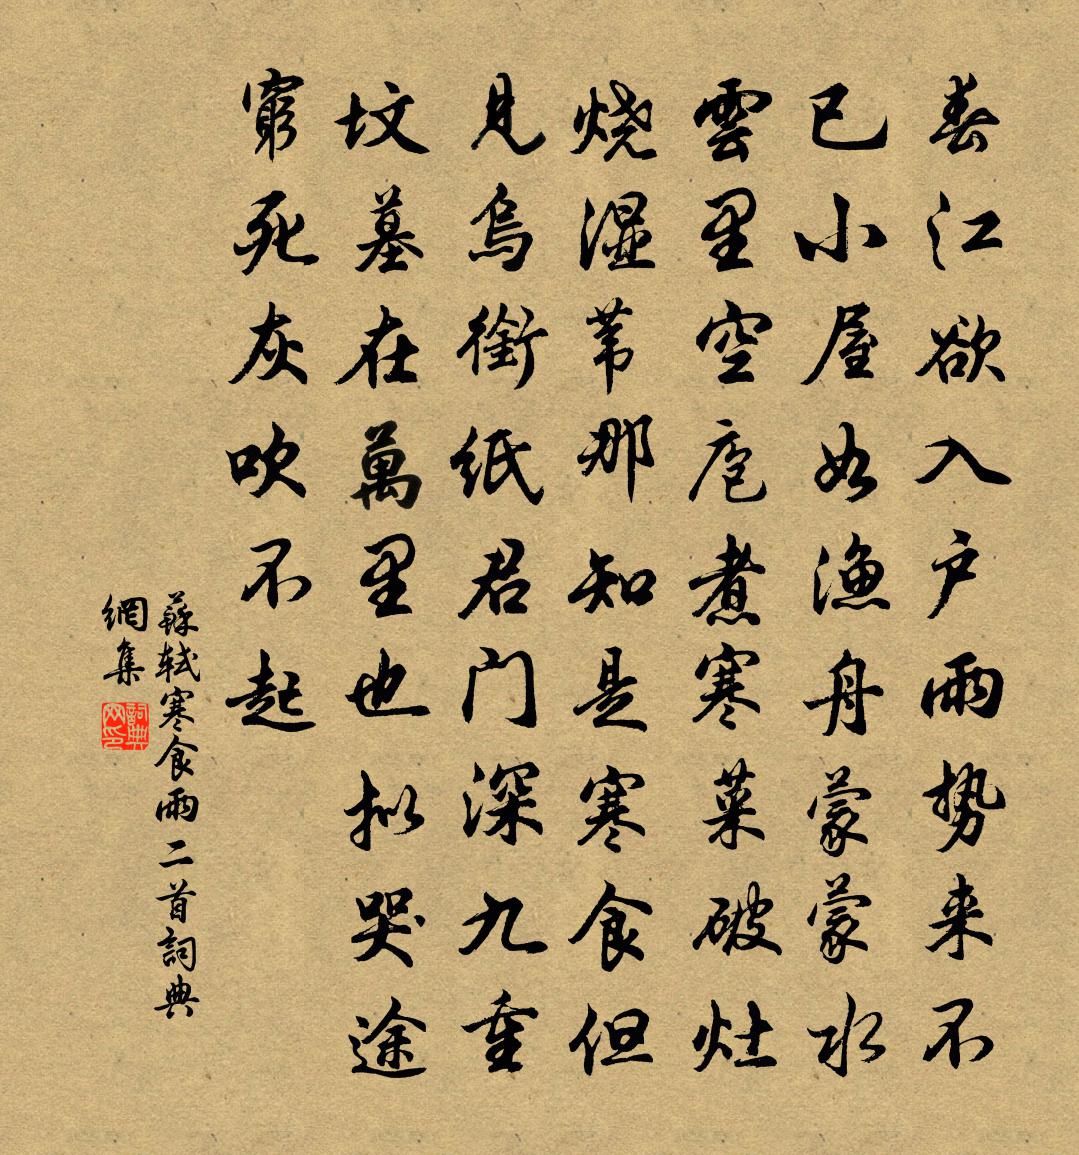 春江欲入户雨势来不
已小屋如渔舟蒙蒙水
雲里空庖煮寒菜破灶
烧湿苇那知是寒食但
見烏銜纸君门深九重
坟墓在萬里也拟哭途
窮死灰吹不起
蘇轼寒食雨二首詞典
網集
詞典网印